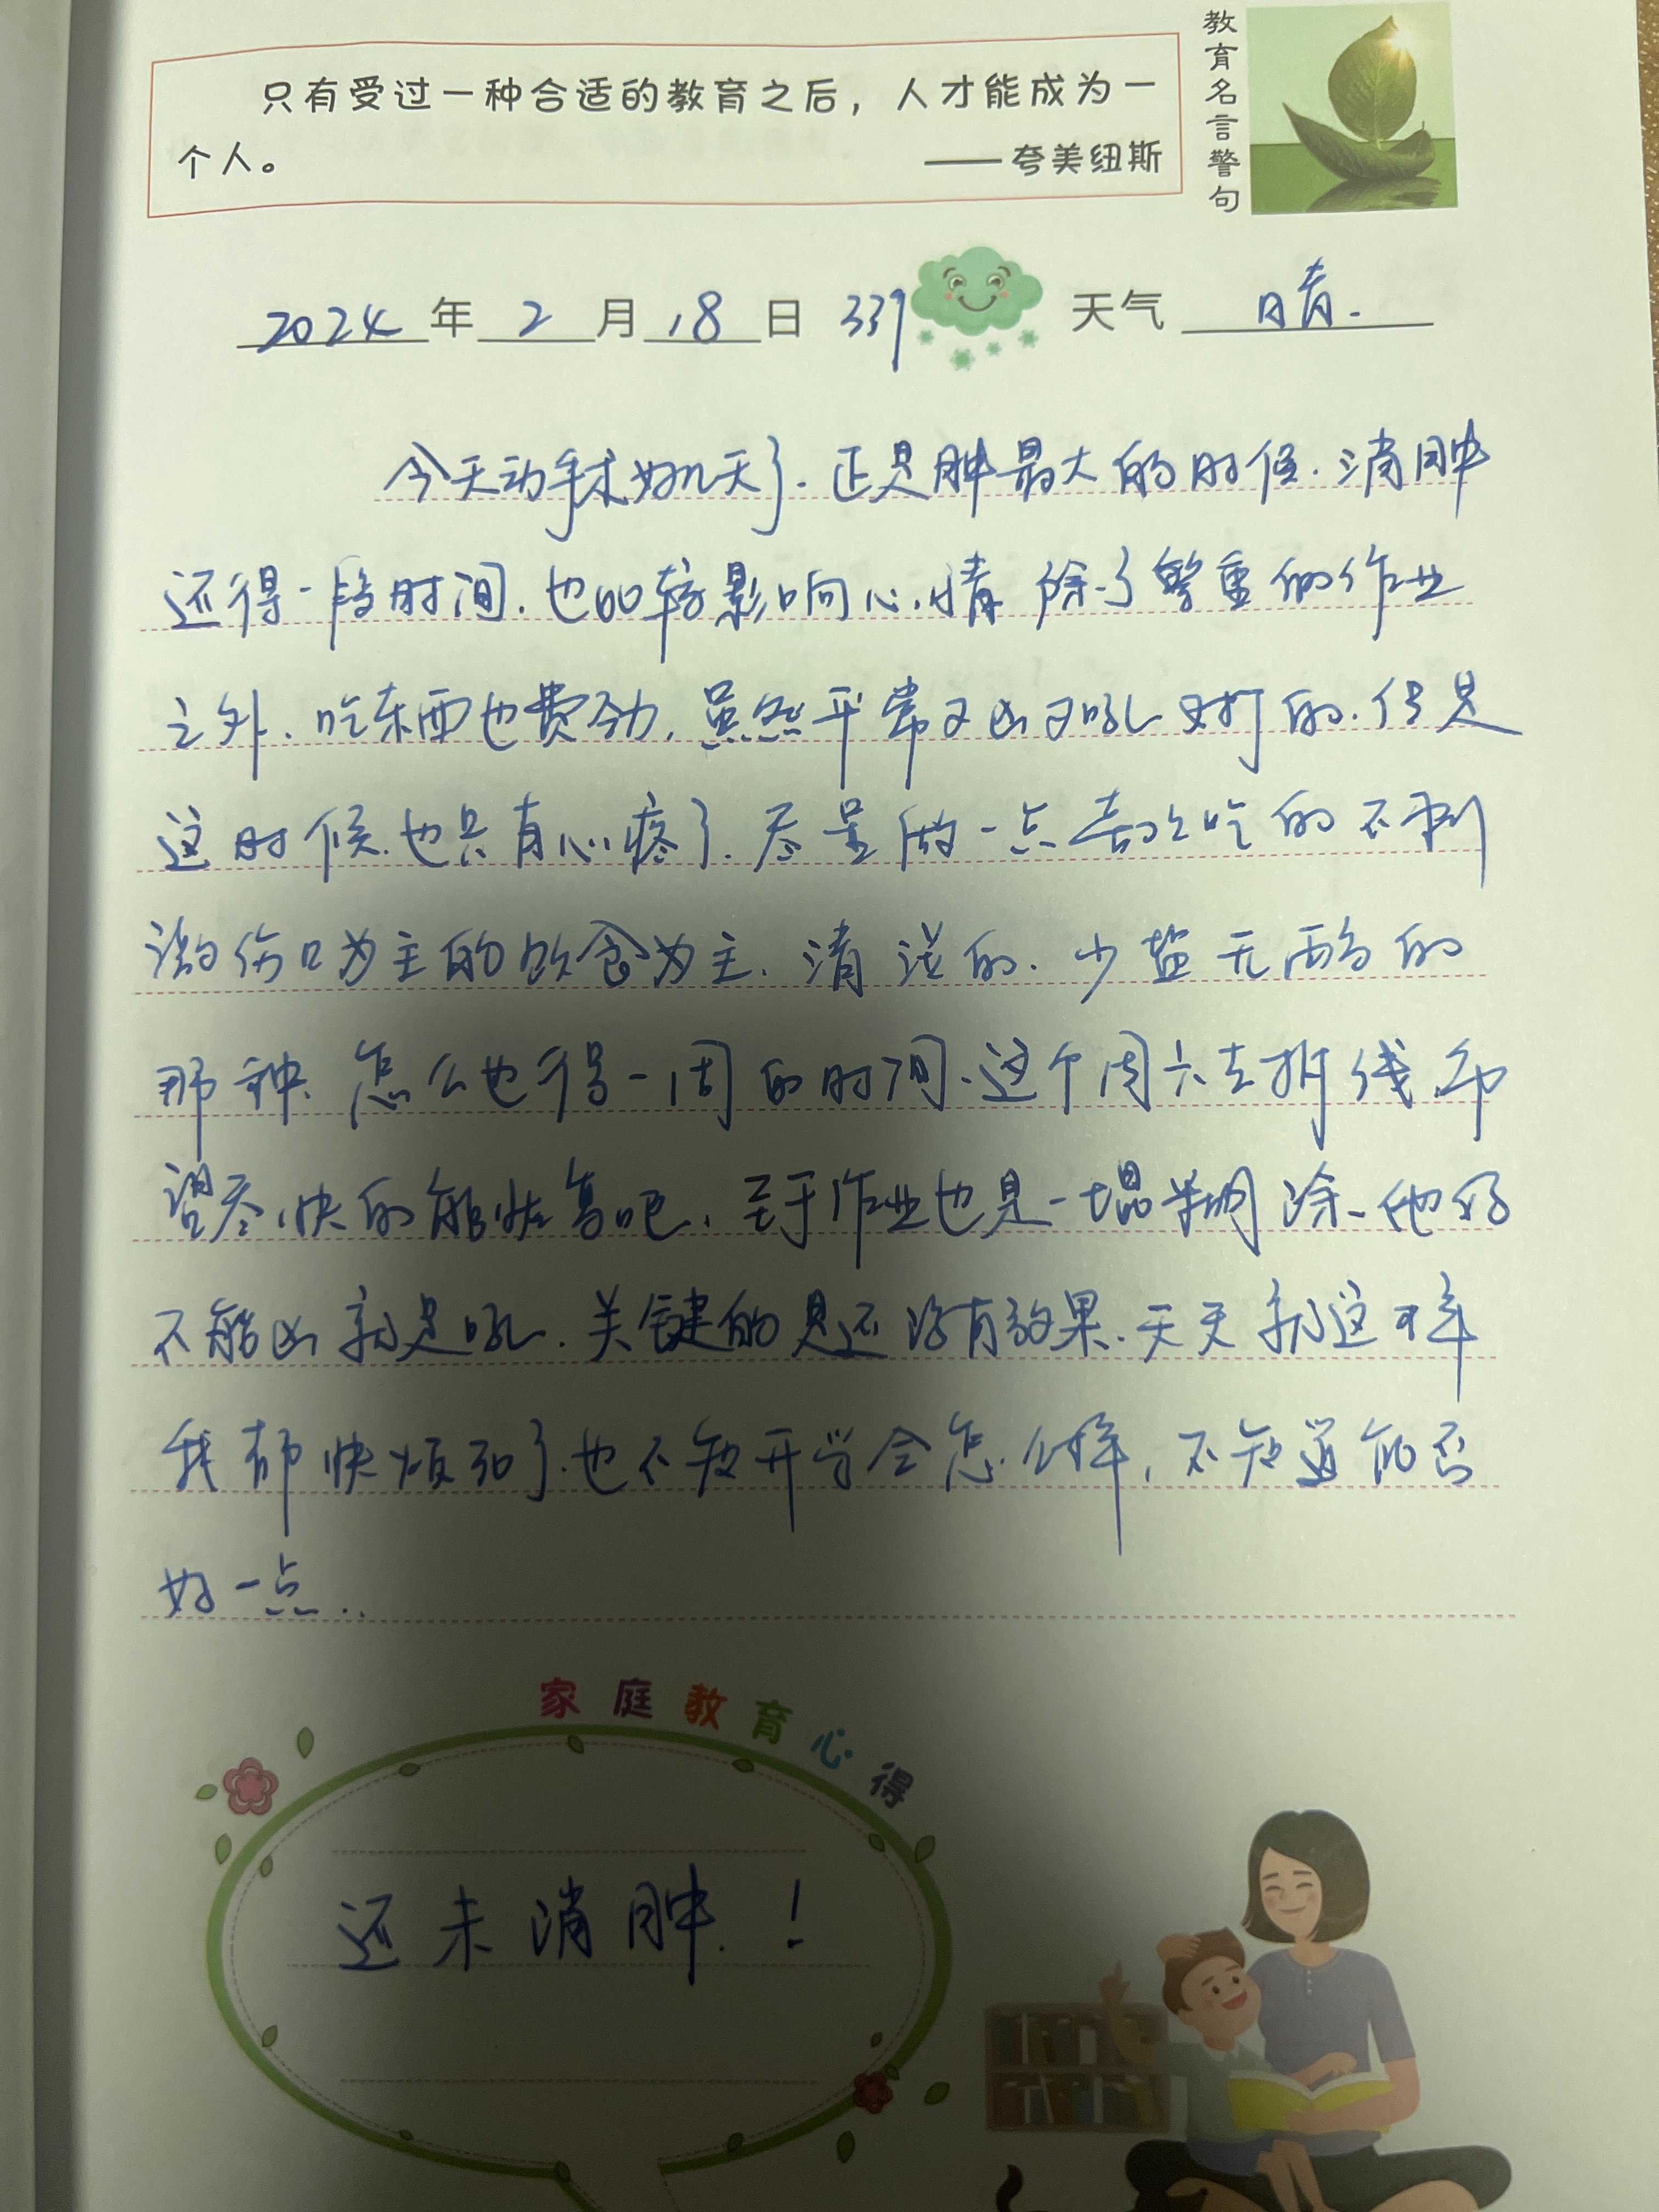 只有受过一种合适的教育之后，人才能成为一
个人。 ——夸美纽斯
教育名言警句
2024年2月18日 339 天气 晴.
今天动手术好几天了.正是肿最大的时候.消肿
还得一段时间.也比较影响心情 除了繁重的作业
之外.吃东西也费劲,虽然平常又凶又吼又打的.但是
这时候.也只有心疼了.尽量做一点 吃的不刺
激伤口为主的饮食为主.清淡的.少盐无油的
那种.怎么也得一周的时间.这个周六去拆线.希
望尽快的能恢复吧.至于作业也是一塌糊涂.他
不能凶就是吼.关键的是还没有效果.天天就这样
我都快烦死了.也不知开学会怎么样,不知道能否
好一点..
家庭教育心得
还未消肿.!